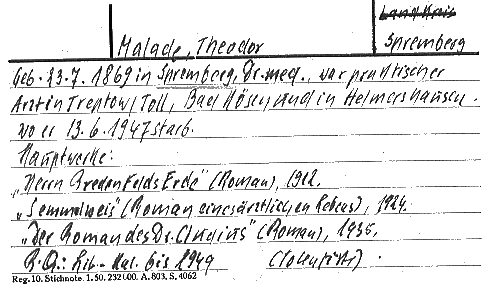 Land Kreis
Malade, Theodor Spremberg
Geb. 23.7. 1869 in Spremberg, Dr. med., war praktischer
Arzt in Treptow/Toll, Bad Kösen und in Helmershausen.
wo er 13.6.1947 starb.
Hauptwerke:
„Herrn Gredenfelds Erde" (Roman), 1912.
„Semmelweis" (Roman eines ärztlichen Lebens), 1924.
„Der Roman des Dr. Claudius" (Roman), 1935.
Lit.-Kal. bis 1949
Reg. 10. Stichnote. 1. 50. 232 000. A. 803. S. 4062